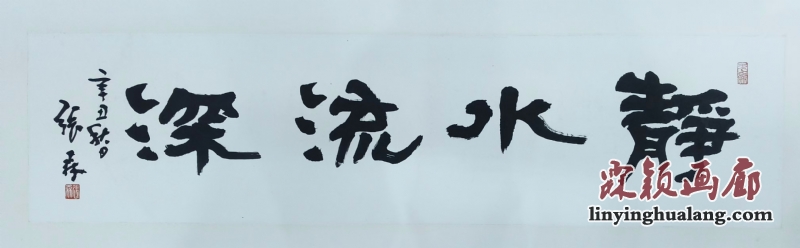 靜水流深
辛丑秋日
張森
颖画廊
linyinghualang.com